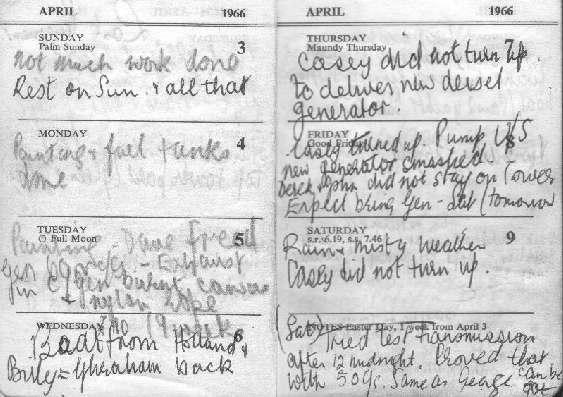 APRIL 1966
SUNDAY 3
Palm Sunday
not much work done
Rest on Sun. & all that
MONDAY 4
Painting & fuel tanks
Done
TUESDAY 5
Full Moon
Painting - Dave fixed
gen - Exhaust
gen canvas
& nylon rope
WEDNESDAY 6
Boat from Holland &
Billy = Graham back
APRIL 1966
THURSDAY 7
Maundy Thursday
Casey did not turn up.
to deliver new diesel
generator.
FRIDAY 8
Good Friday
Casey turned up Pump U/S
new generator smashed
Derek John did not stay on Tower
Expect bring Gen - (tomorrow
SATURDAY 9
s.r. 6.19, s.s. 7.46
Rain & misty weather
Casey did not turn up.
NOTES Easter Day, 1 week from April 3
(Sat) Tried test transmission
after 12 midnight. Proved that
with 50 Same as George can be
got